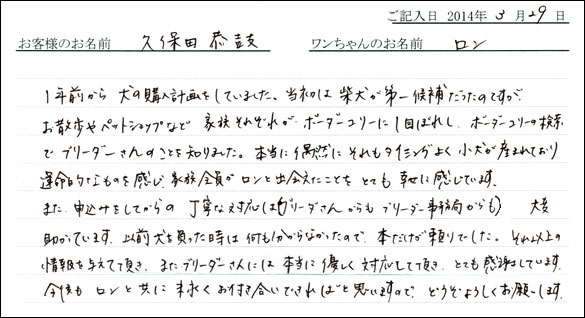 ご記入日 2014年 3 月 29 日
お客様のお名前 久保田 恭鼓 ワンちゃんのお名前 ロン
1年前から 犬の購入計画をしていました。当初は 柴犬が第一候補だったのですが、
お散歩やペットショップなどで 家族それぞれが ボーダーコリーに1目ぼれし、ボーダーコリーの検索
で ブリーダーさんのことを知りました。本当に偶然に それもタイミングよく 小犬が産まれており
運命的なものを感じ、家族全員が ロンと出会えたことを とても 幸せに感じています。
また、申込みをしてからの 丁寧な対応は(ブリーダさんからも ブリーダー事務局からも) 大変
助かっています。以前犬を買った時は 何も分からなかったので、本だけが頼りでした。それ以上の
情報を与えて頂き、またブリーダーさんには 本当に優しく 対応して頂き、とても感謝しています。
今後も ロンと共に 末永くお付き合いできればと思いますので、どうぞよろしくお願いします。